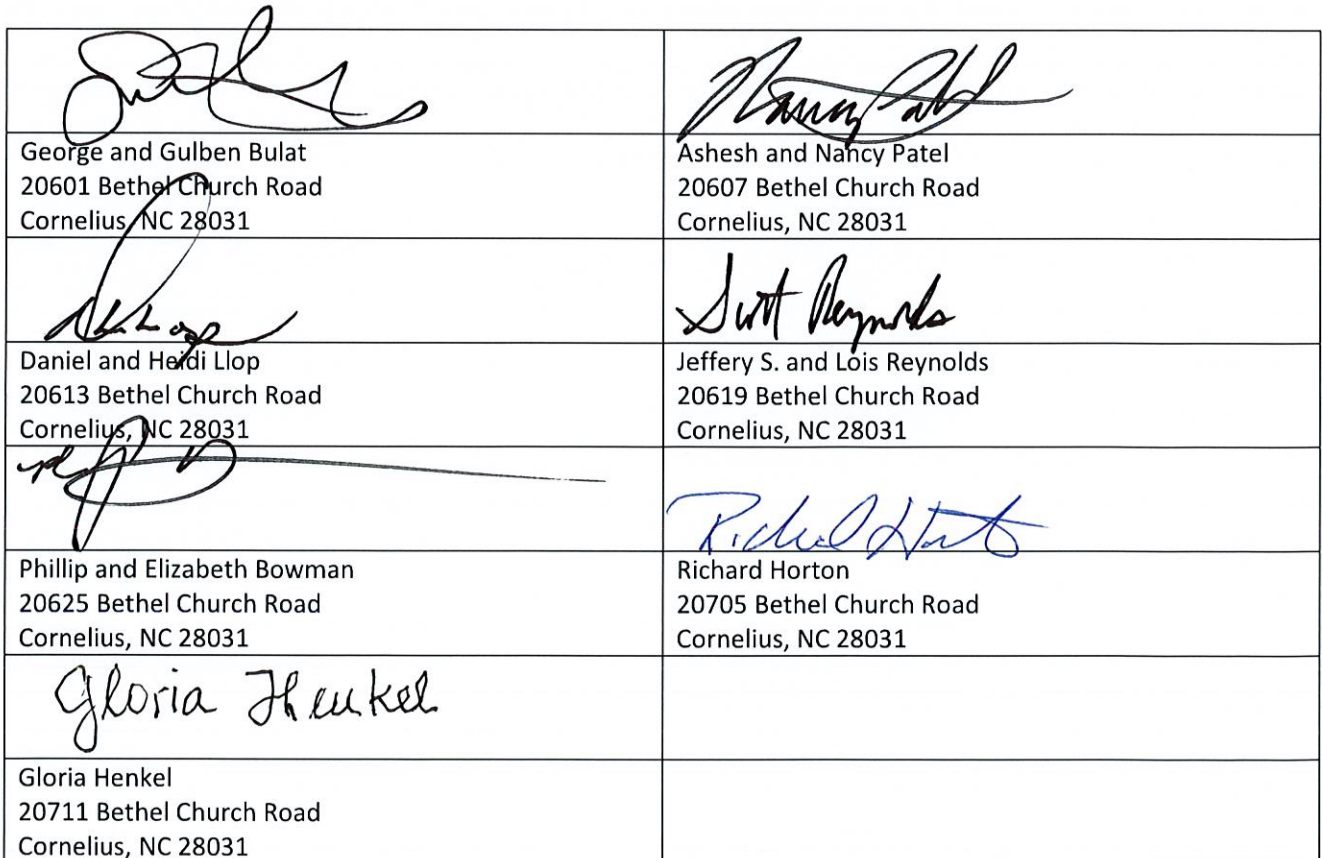 Nancy Patel
George and Gulben Bulat
20601 Bethel Church Road
Cornelius, NC 28031
Ashesh and Nancy Patel
20607 Bethel Church Road
Cornelius, NC 28031
Scott Reynolds
Daniel and Heidi Llop
20613 Bethel Church Road
Cornelius, NC 28031
Jeffery S. and Lois Reynolds
20619 Bethel Church Road
Cornelius, NC 28031
Richard Horton
Phillip and Elizabeth Bowman
20625 Bethel Church Road
Cornelius, NC 28031
Richard Horton
20705 Bethel Church Road
Cornelius, NC 28031
Gloria Henkel
Gloria Henkel
20711 Bethel Church Road
Cornelius, NC 28031